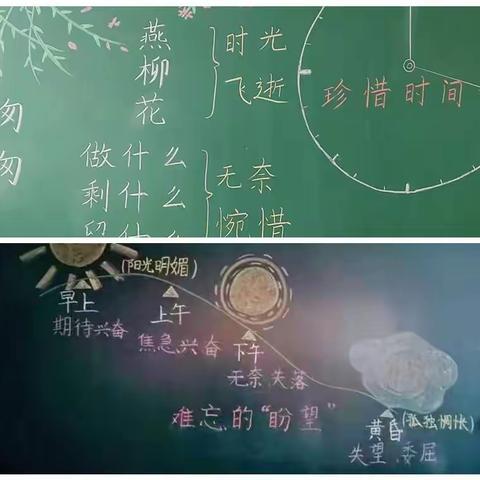 匆
匆
燕
柳
花
时光
飞逝
珍惜时间
做什么
剩什么
留什么
无奈
惋惜
(阳光明媚)
早上
期待兴奋
上午
焦急兴奋
下午
无奈、失落
难忘的“盼望”
黄昏(孤独惆怅)
失望、委屈